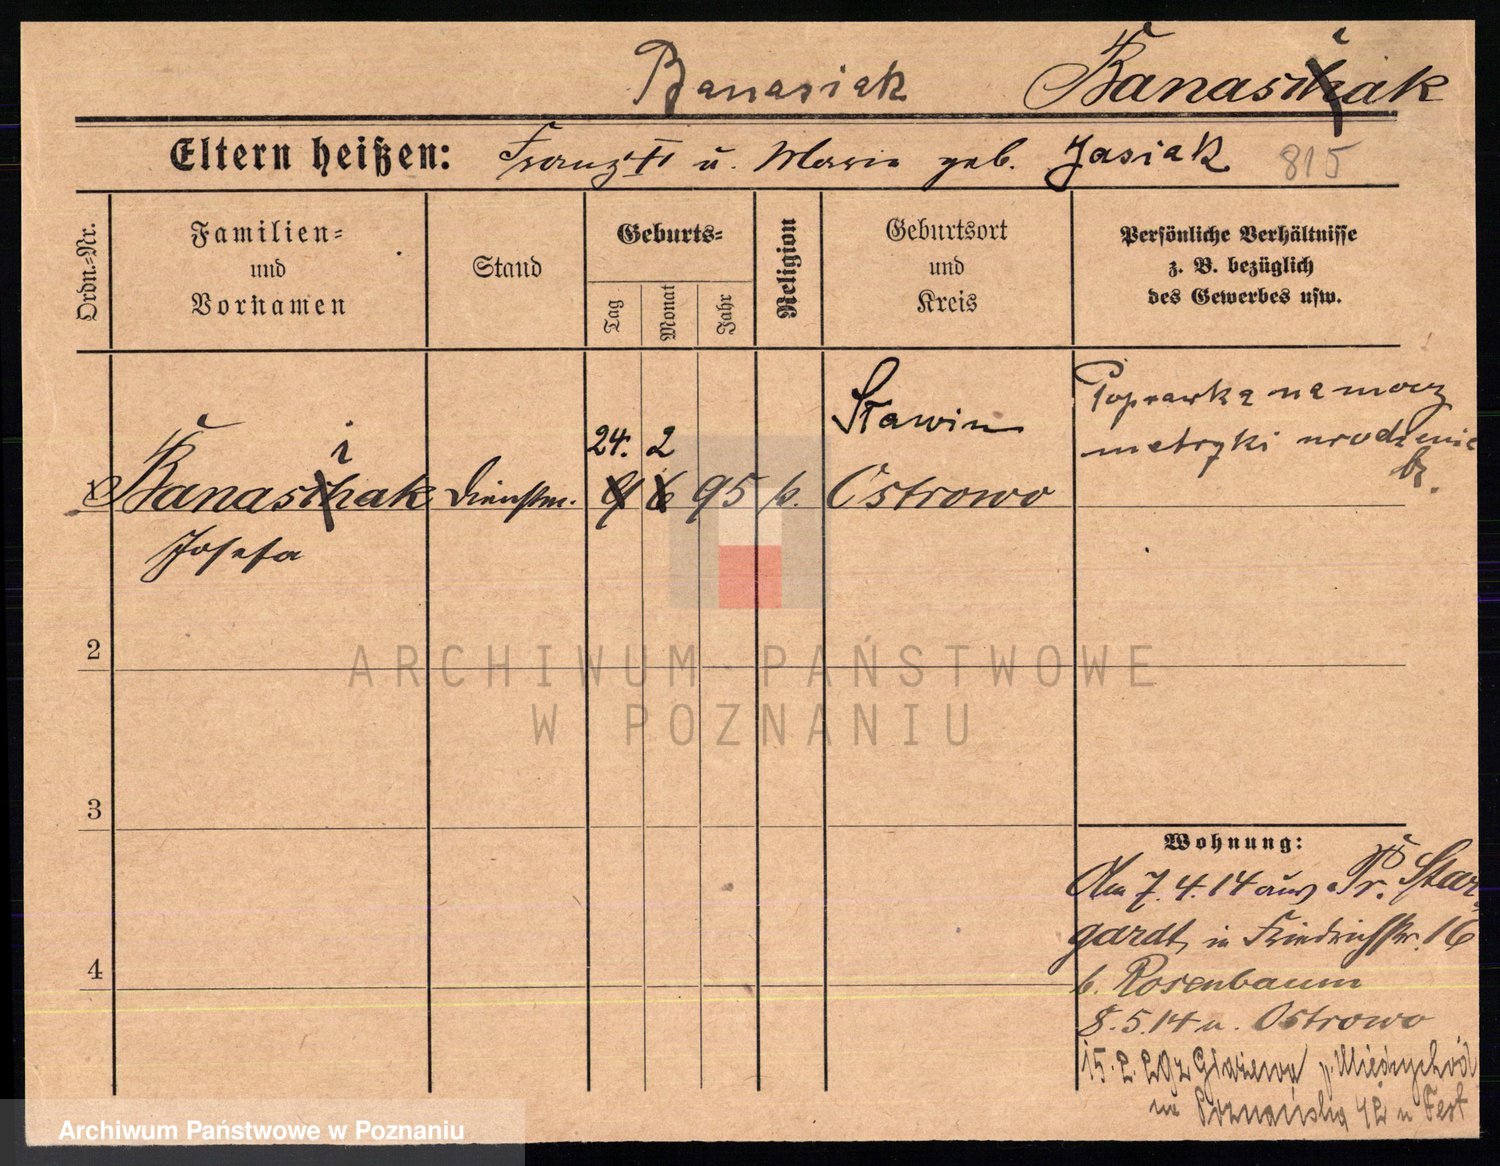 Banasiak Banasiak
Eltern heißen: Franz II u. Marie geb. Jasiak 815
Ordn.-Nr.
Familien-
und
Vornamen
Stand
Geburts-
Tag
Monat
Jahr
Religion
Geburtsort
und
Kreis
Persönliche Verhältnisse
z. B. bezüglich
des Gewerbes usw.
Poprawka na mocy
metryki urodzenia
24. 2
Sławin
1 Banasiak Dienstm. 9 6 95 k. Ostrowo
Josefa
2
ARCHIWUM PAŃSTWOWE
W POZNANIU
3
4
Wohnung:
Am 7.4.14 aus Pr. Star-
gardt, in Friedrichstr. 16
b. Rosenbaum
8.5.14 n. Ostrowo
15. 2. Miedzychód
Poznańska 42
Archiwum Państwowe w Poznaniu